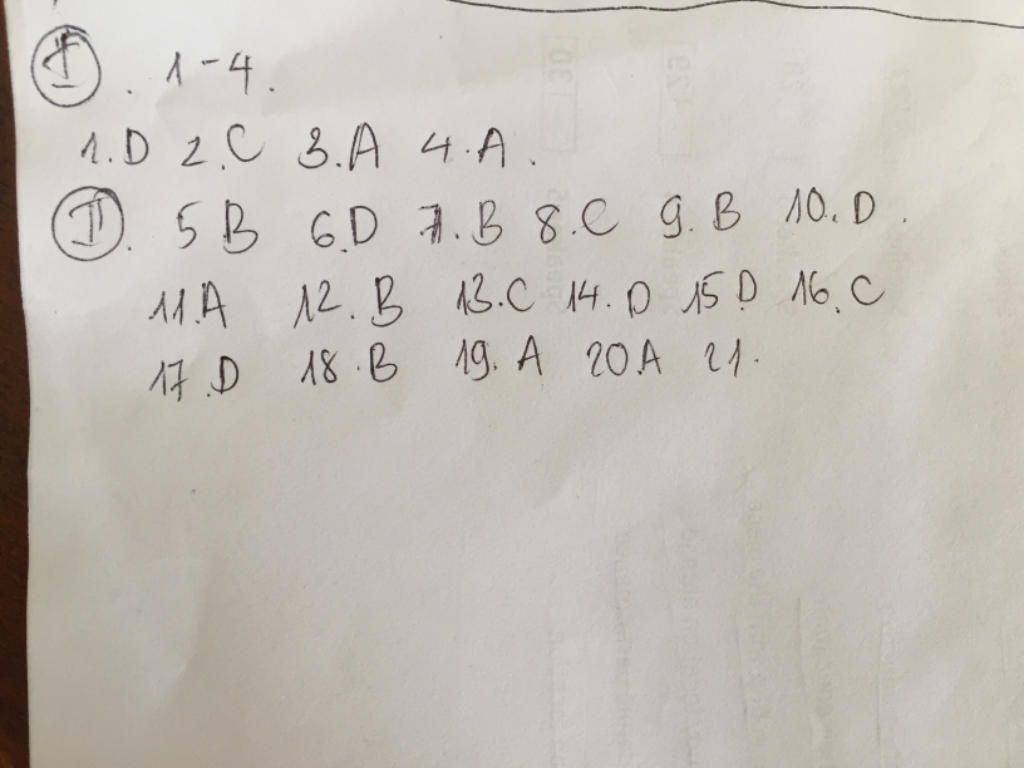 I. 1-4.
1.D 2.C 3.A 4.A.
II. 5B 6.D 7.B 8.C 9.B 10.D.
11.A 12.B 13.C 14.D 15D 16.C
17.D 18.B 19.A 20.A 21.